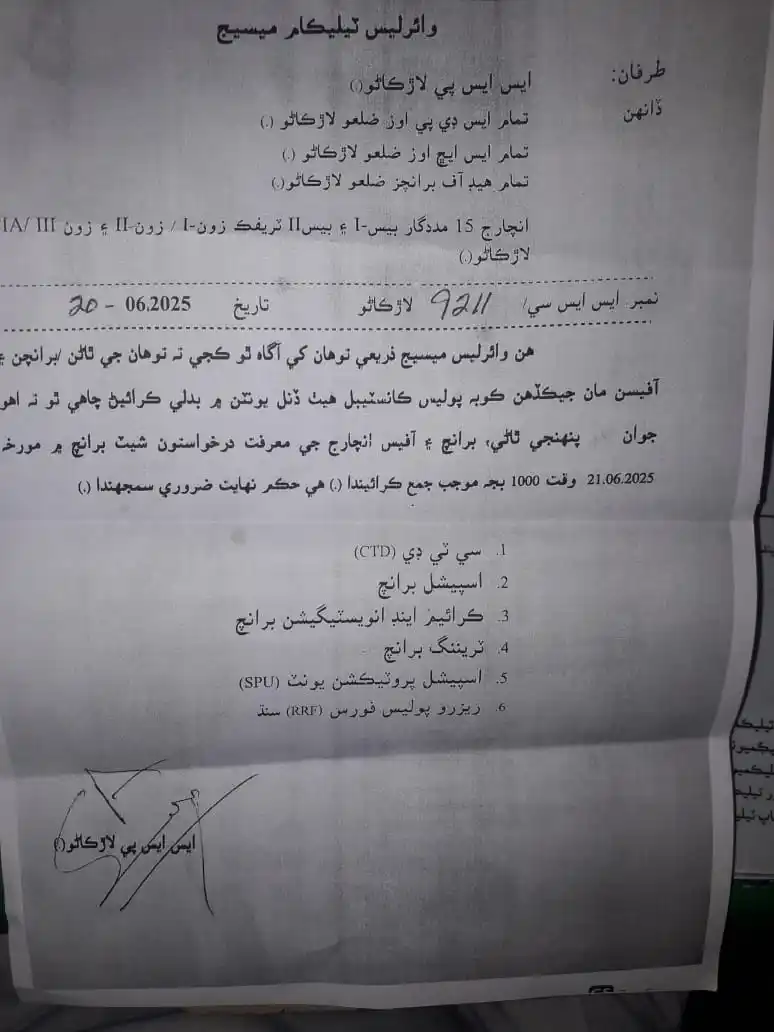 وائرليس ٽيليڪام ميسيج
طرفان: ايس ايس پي لاڙڪاڻو(.)
ڏانهن تمام ايس ڊي پي اوز ضلعو لاڙڪاڻو (.)
تمام ايس ايڇ اوز ضلعو لاڙڪاڻو (.)
تمام هيڊ آف برانچز ضلعو لاڙڪاڻو(.)
انچارج 15 مددگار بيس-I ۽ بيسII ٽريفڪ زون-I / زون-II ۽ زون IA/ III
لاڙڪاڻو(.)
نمبر ايس ايس سي/ 9211 لاڙڪاڻو تاريخ 20 - 06.2025
هن وائرليس ميسيج ذريعي توهان کي آگاھ ٿو ڪجي تہ توهان جي ٿاڻن /برانچن ۽
آفيسن مان جيڪڏهن ڪوبہ پوليس ڪانسٽيبل هيٺ ڏنل يونٽن ۾ بدلي ڪرائيڻ چاهي ٿو تہ اهو
جوان پنهنجي ٿاڻي، برانچ ۽ آفيس انچارج جي معرفت درخواستون شيٽ برانچ ۾ مورخہ
21.06.2025 وقت 1000 بجہ موجب جمع ڪرائيندا (.) هي حڪم نهايت ضروري سمجهندا (.)
1. سي ٽي ڊي (CTD)
2. اسپيشل برانچ
3. ڪرائيم اينڊ انويسٽيگيشن برانچ
4. ٽريننگ برانچ
5. اسپيشل پروٽيڪشن يونٽ (SPU)
6. ريزرو پوليس فورس (RRF) سنڌ
ايس ايس پي لاڙڪاڻو(.)